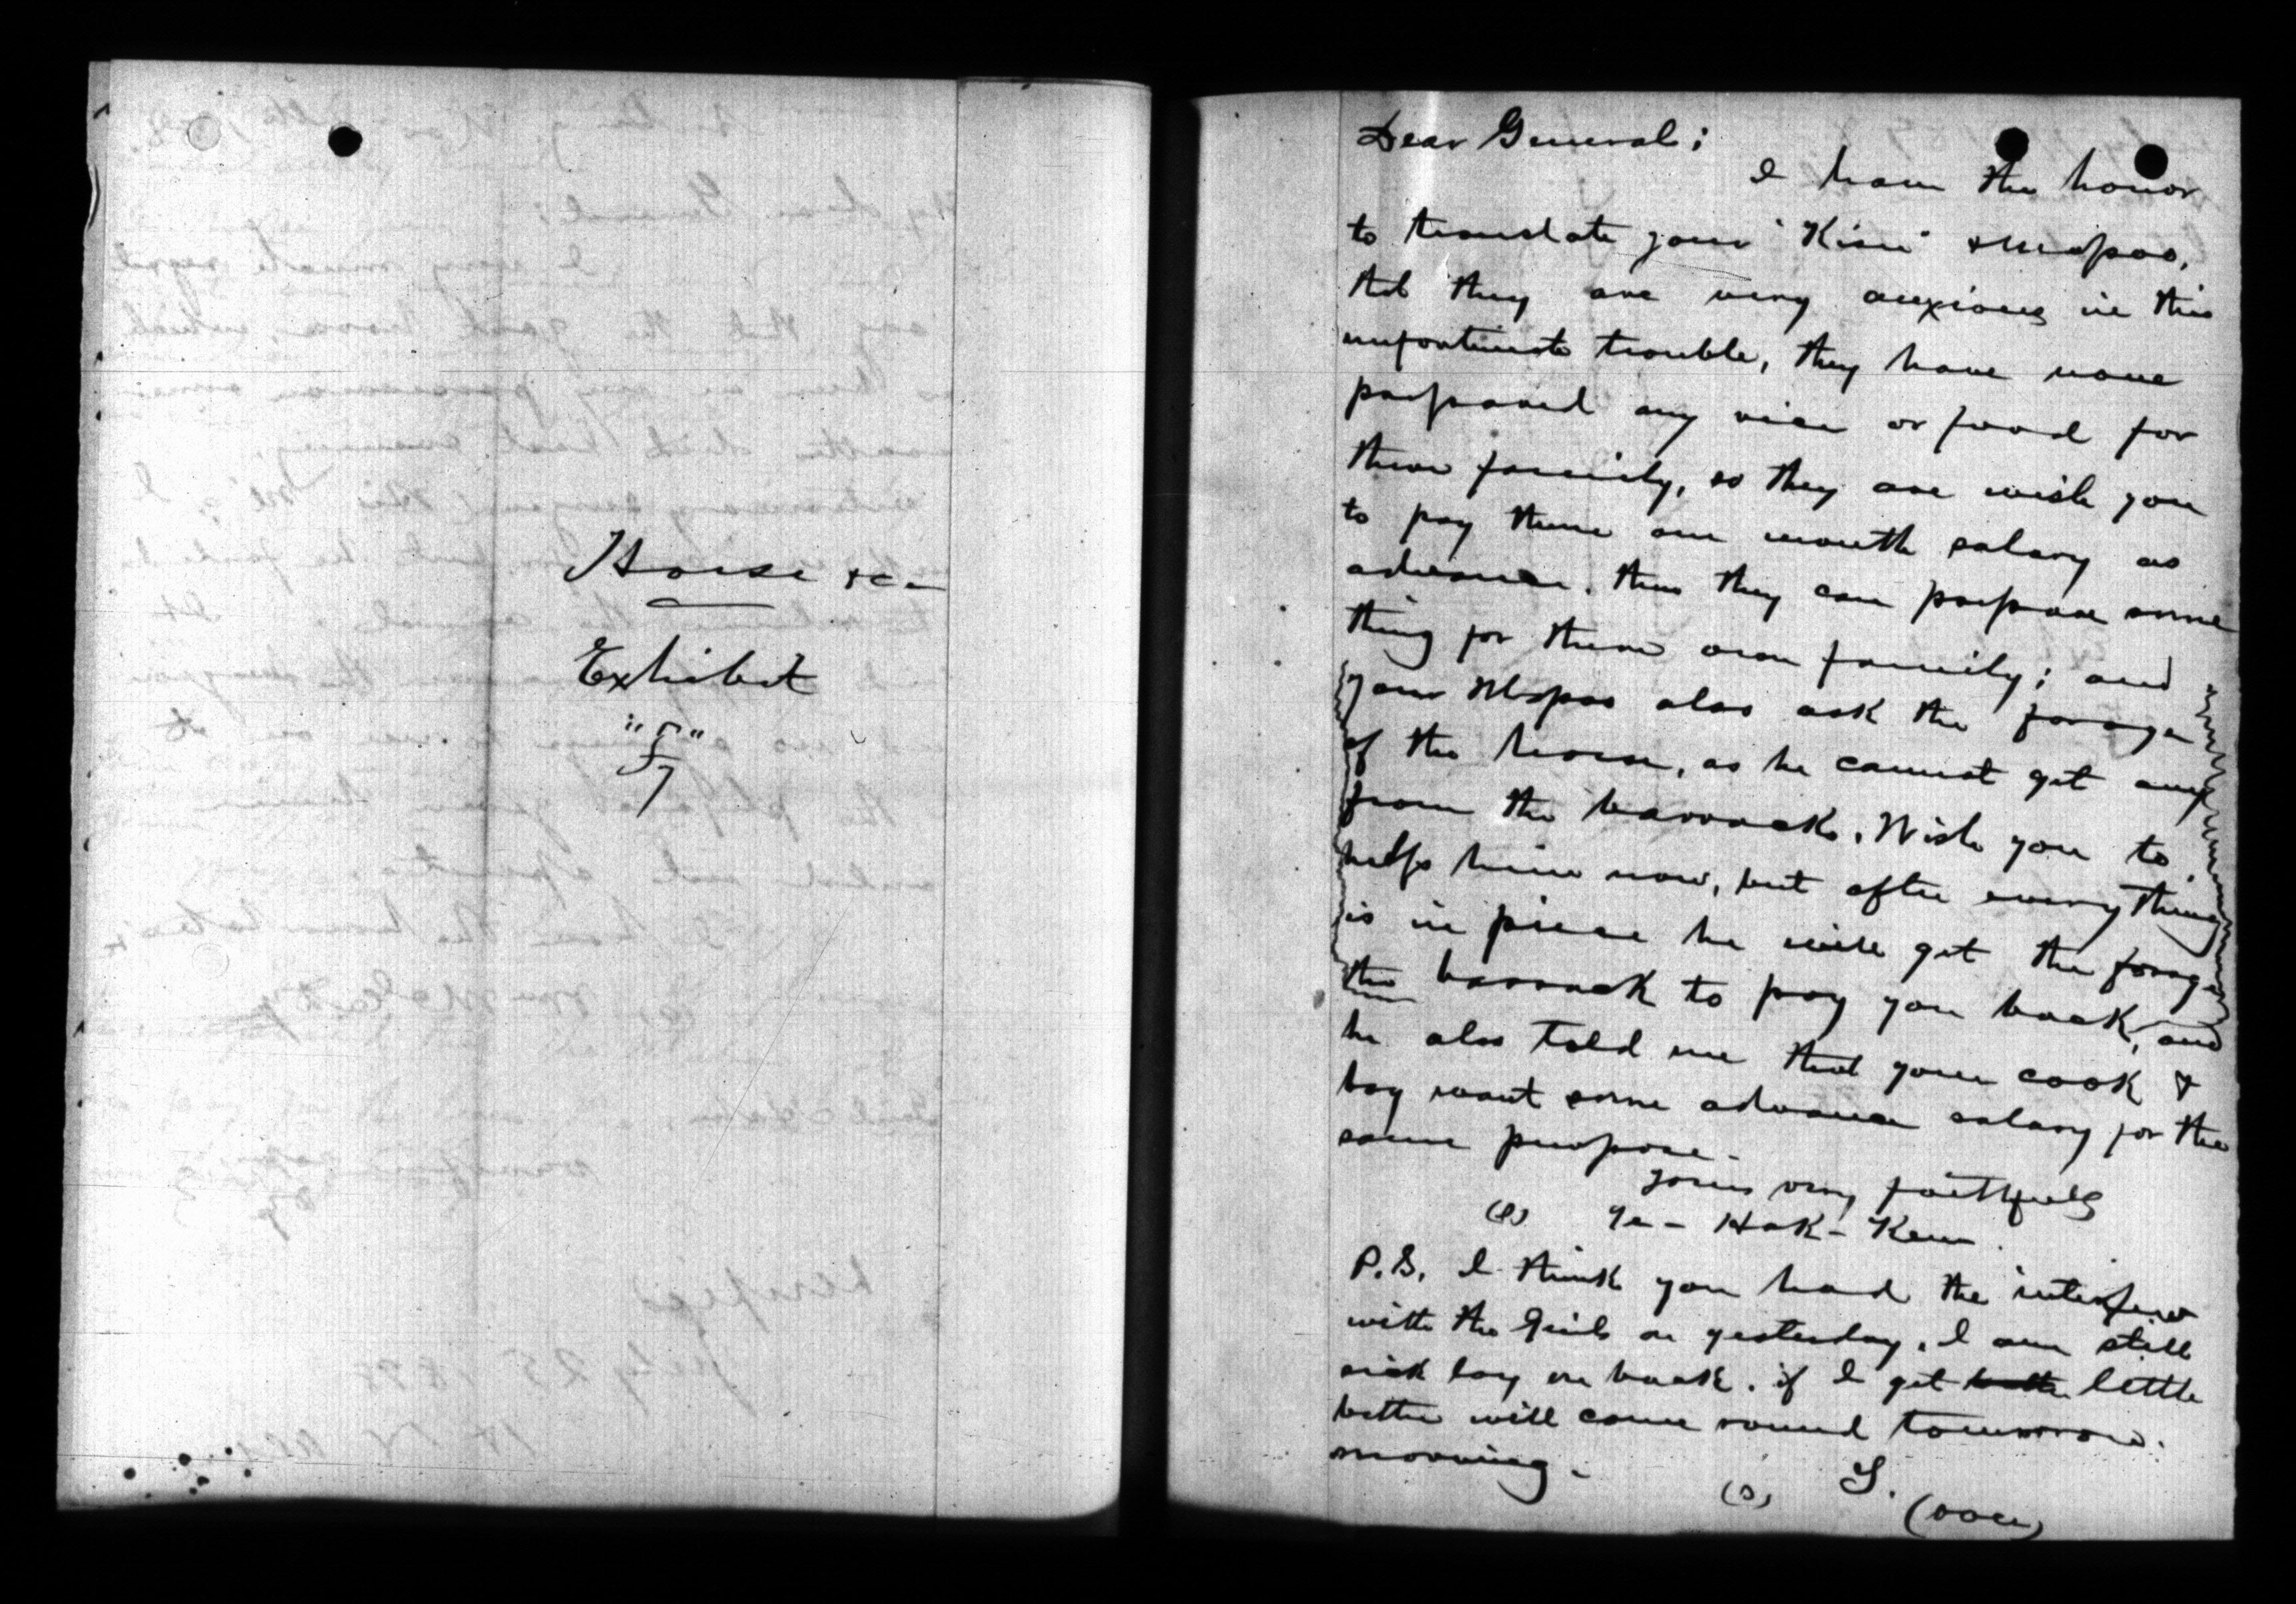 Horse &c
Exhibit
"5"
7
Dear General;
I have the honor
to translate your "Kisu" & Mapoo,
that they are very anxious in this
unfortunate trouble, they have none
prepared any rice or food for
their family, so they are wish you
to pay them one month salary as
advance. then they can prepare some
thing for their own family; and
your Mapoo also ask the forage
of the horse, as he cannot get any
from the barracks. Wish you to
help him now, but after every thing
is in piece he will get the forage
the barrack to pay you back, and
he also told me that your cook &
boy want some advance salary for the
same purpose.
Yours very faithfully
(s) Ye-Hak-Keun.
P.S. I think you had the interfew
with the Genl. on yesterday, I am still
sick lay on back. if I get little
better will come round tomorrow.
morning.
(s) Y.
(over)